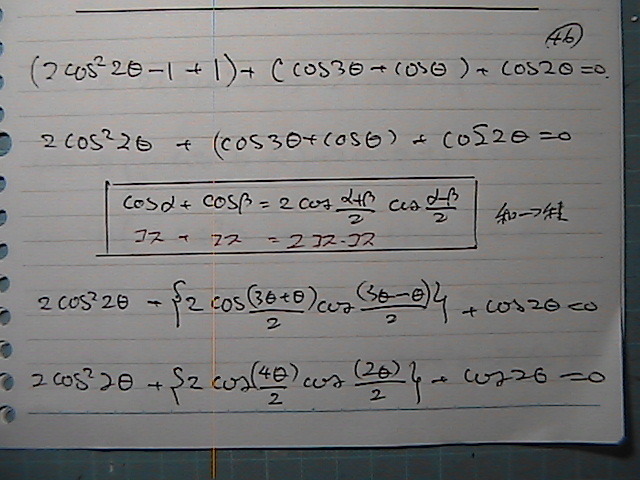 (46)
(2cos²2θ-1+1)+(cos3θ+cosθ)+cos2θ=0.
2cos²2θ+(cos3θ+cosθ)+cos2θ=0
cosα+cosβ=2cos (α+β)/2 cos (α-β)/2 和→積
コ+コ=2コ・コ
2cos²2θ+{2cos (3θ+θ)/2 cos (3θ-θ)/2}+cos2θ=0
2cos²2θ+{2cos (4θ)/2 cos (2θ)/2}+cos2θ=0